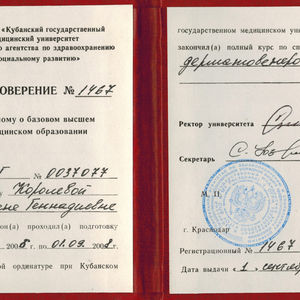 «Кубанский государственный
едицинский университет
о агентства по здравоохранению
оциальному развитию»
ОВЕРЕНИЕ № 1467
ному о базовом высшем
цинском образовании
№ 0037077
Королевой
Геннадиевне
он(а) проходил(а) подготовку
по 01.09.
ой ординатуре при Кубанском
государственном медицинском уни
закончил(а) полный курс по сп
дерматовенеро
Ректор университета
Секретарь
М. П.
г. Краснодар
Регистрационный № 1467
Дата выдачи « 1 » сентяб